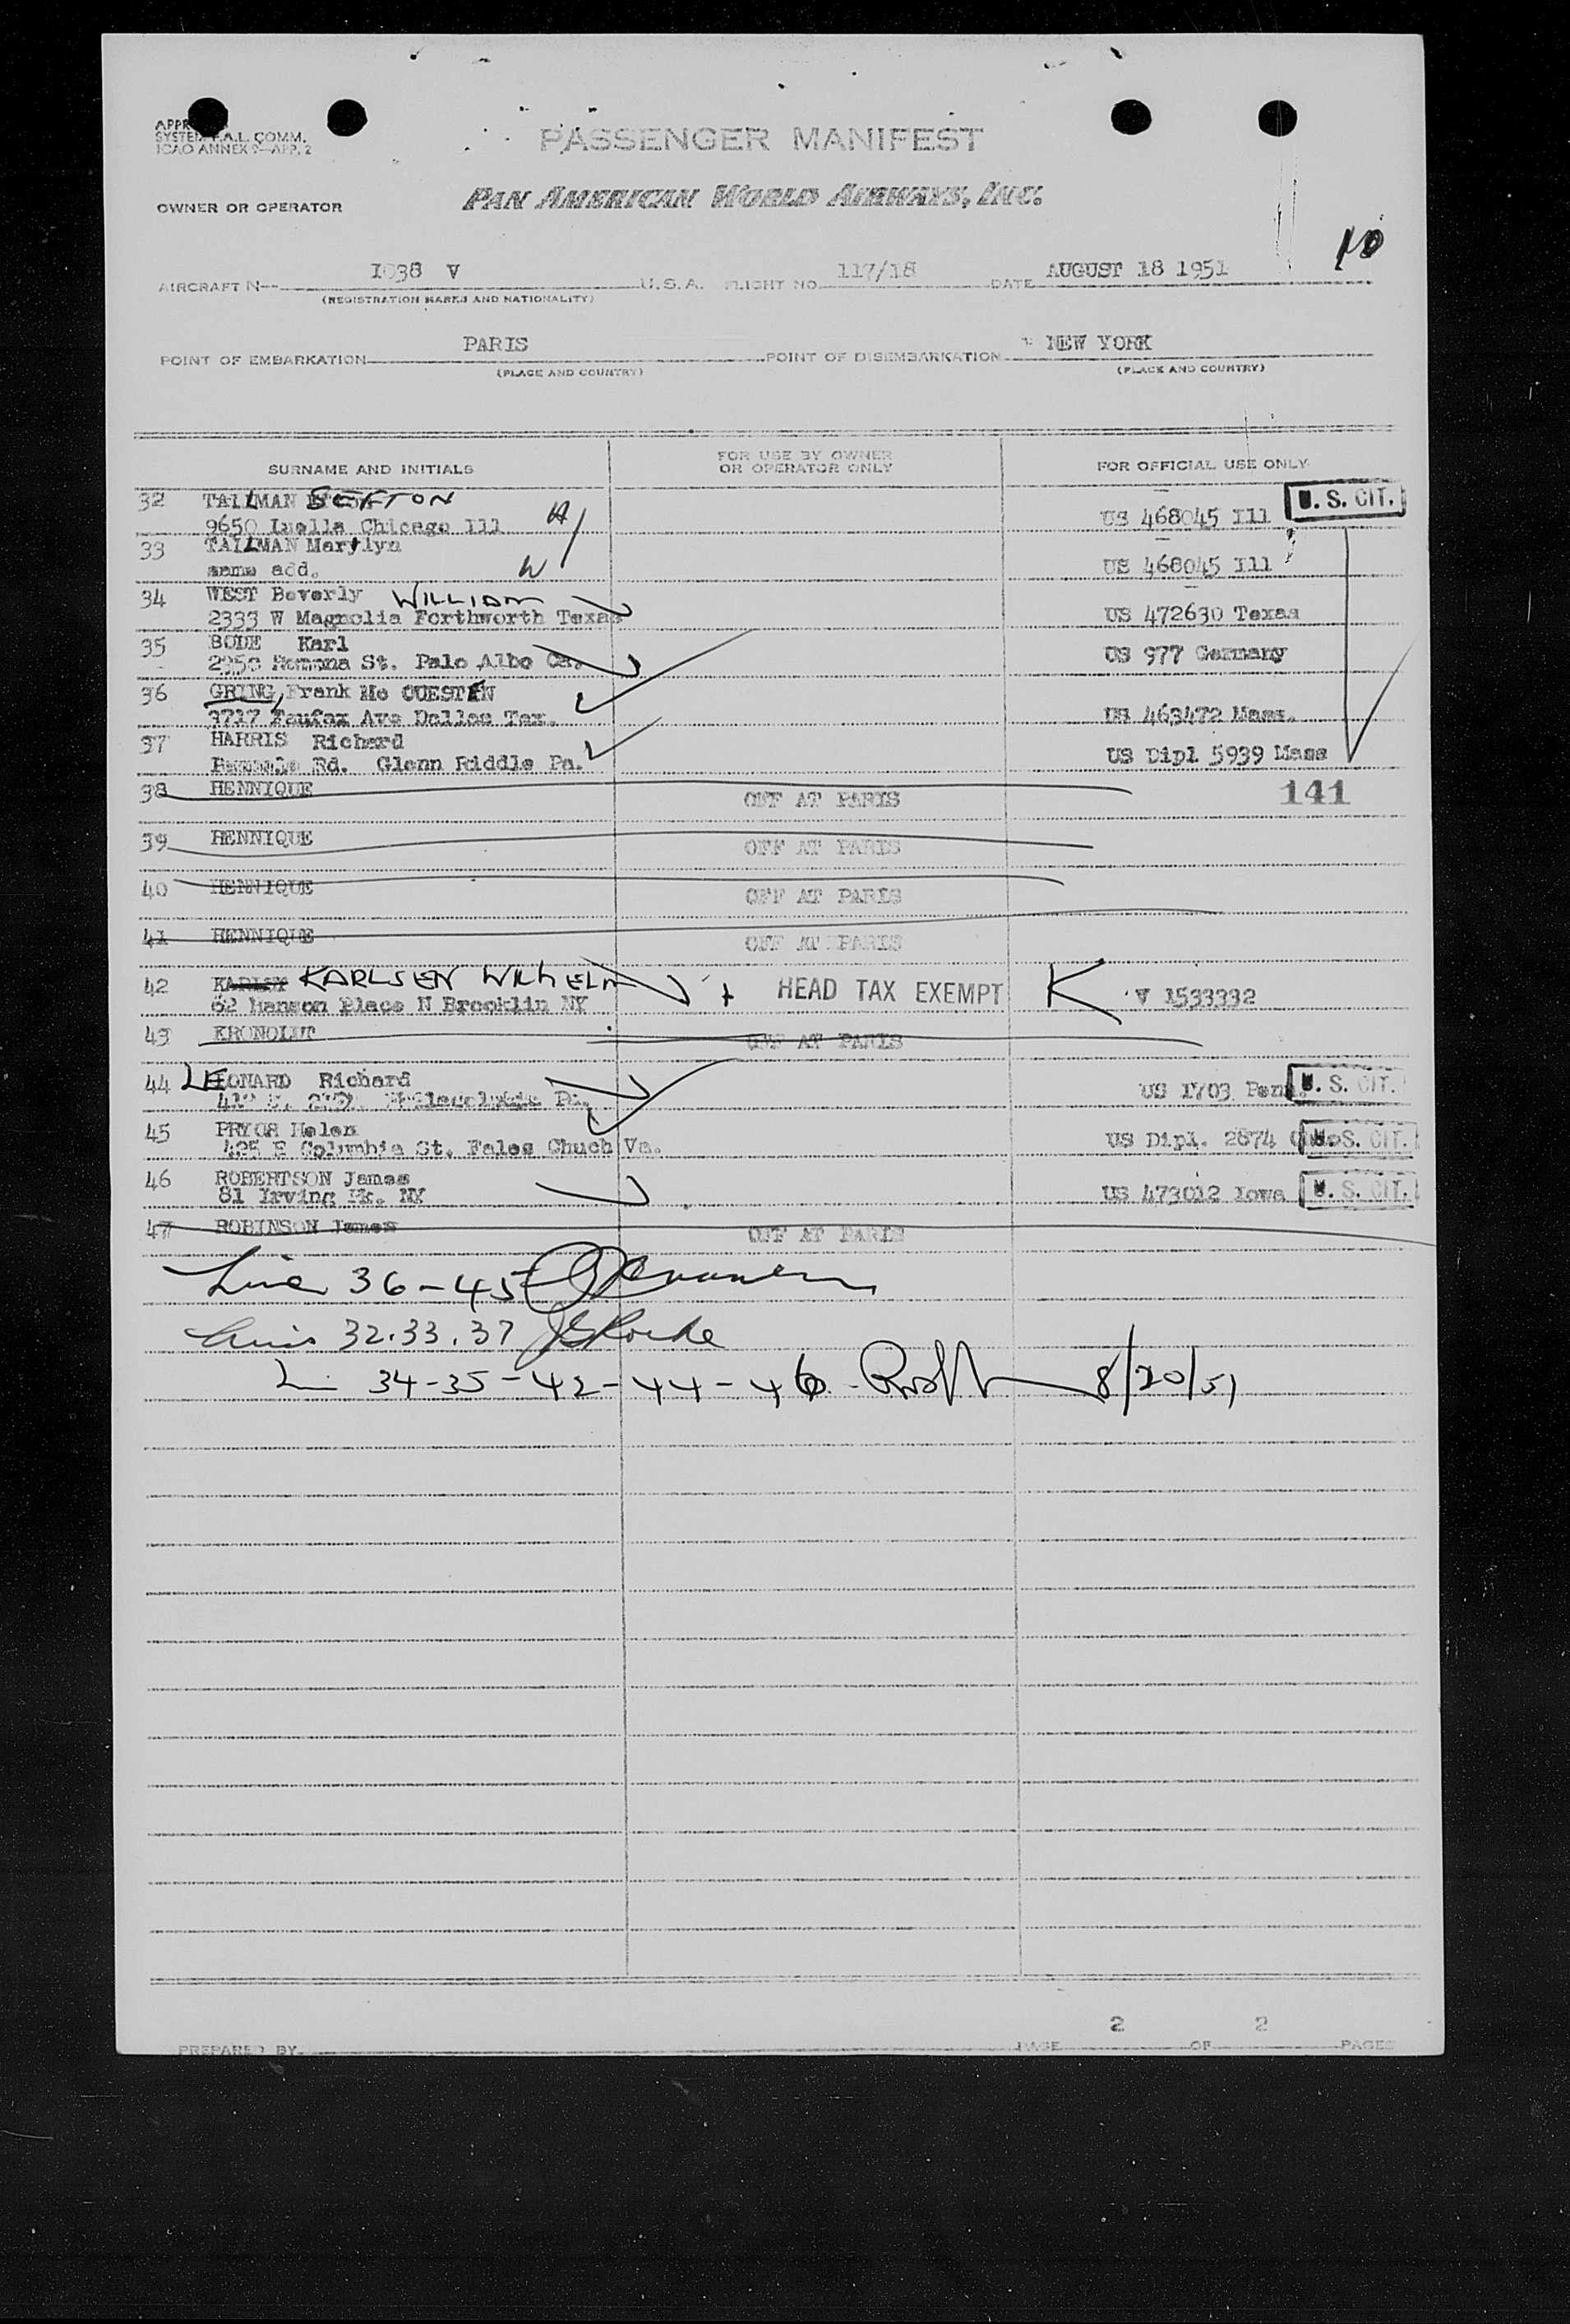 SYSTEM F.A.L. COMM.
ICAO ANNEX 9—APP. 2
PASSENGER MANIFEST
OWNER OR OPERATOR PAN AMERICAN WORLD AIRWAYS, INC.
10
AIRCRAFT N-- 1038 V U.S.A. FLIGHT NO. 117/18 DATE AUGUST 18 1951
(REGISTRATION MARKS AND NATIONALITY)
POINT OF EMBARKATION PARIS POINT OF DISEMBARKATION NEW YORK
(PLACE AND COUNTRY) (PLACE AND COUNTRY)
SURNAME AND INITIALS FOR USE BY OWNER OR OPERATOR ONLY FOR OFFICIAL USE ONLY
32 TALLMAN SEFTON
9650 Luella Chicago Ill H US 468045 Ill U. S. CIT.
33 TALLMAN Marylyn
same add. W US 468045 Ill
34 WEST Beverly WILLIAM
2333 W Magnolia Forthworth Texas US 472630 Texas
35 BODE Karl
Ramona St. Palo Albo Ca. US 977 Germany
36 GRING, Frank Mc CUESTEN
3717 Faufax Ave Dallas Tex. US 463472 Mass.
37 HARRIS Richard
Rd. Glenn Riddle Pa. US Dipl 5939 Mass
38 HENNIQUE OFF AT PARIS 141
39 HENNIQUE OFF AT PARIS
40 HENNIQUE OFF AT PARIS
41 HENNIQUE OFF AT PARIS
42 KARLSEN WILHELM
62 Hanson Place N Brooklin NY + HEAD TAX EXEMPT K V 1533332
43 KRONOLUT OFF AT PARIS
44 LEONARD Richard
US 1703 Penn. U. S. CIT.
45 PRYOR Helen
425 E Columbia St. Fales Chuch Va. US Dipl. 2874 U. S. CIT.
46 ROBERTSON James
81 Irving Pk. NY US 473012 Iowa U. S. CIT.
47 ROBINSON James OFF AT PARIS
Line 36-45
32.33.37
L 34-35-42-44-46 8/20/51
PREPARED BY PAGE 2 OF 2 PAGES